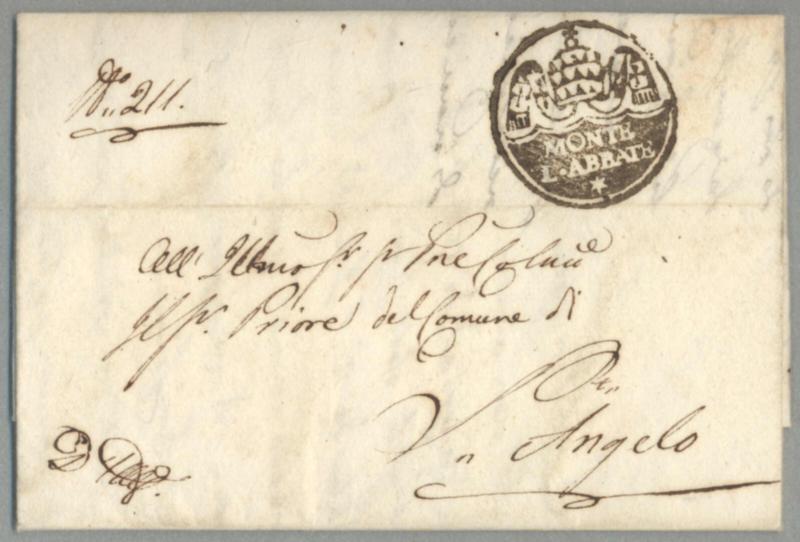 N.° 211.
MONTE
L'ABBATE
All' Illmo Sr Sr Pne
Il Sr. Priore del Comune di
S. Angelo